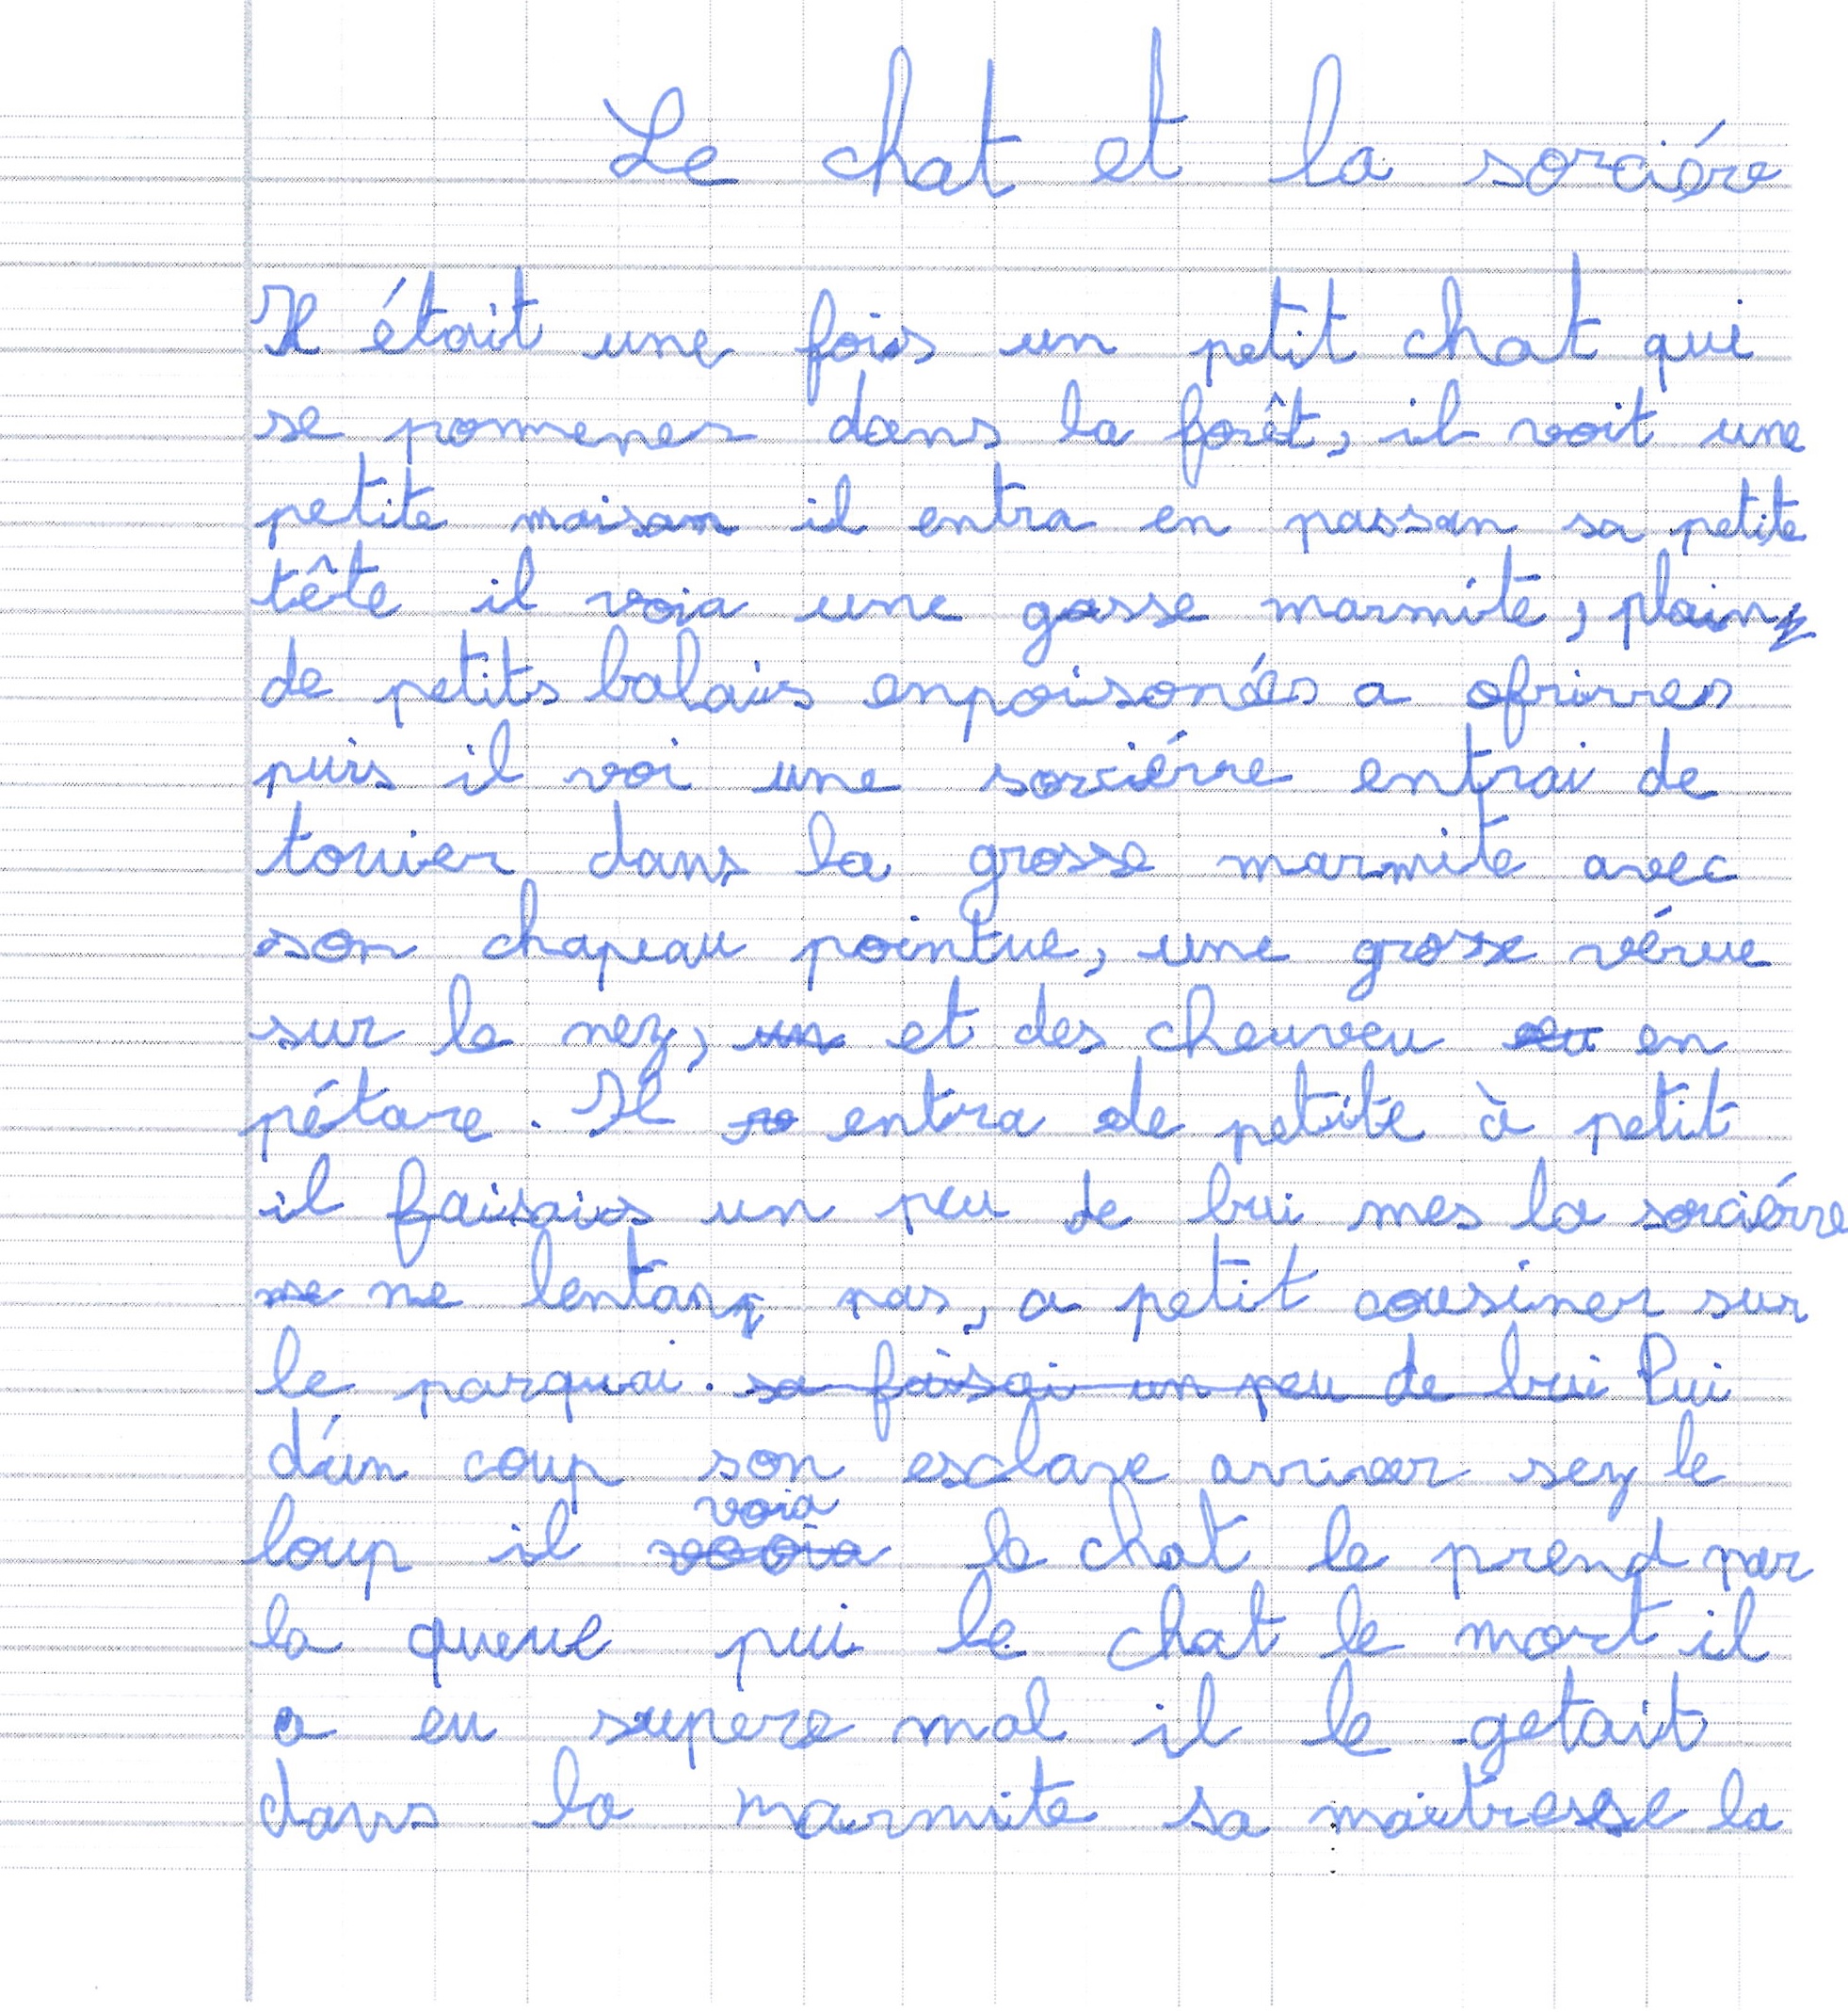 Le chat et la sorciére
Il était une fois un petit chat qui
se pommener dans la forêt, il voit une
petite maison il entra en passan sa petite
tête il voia une gosse marmite, plein
de petits balais enpoisonés a ofrirres
puis il voi une sorciérre entrai de
touier dans la grosse marmite avec
son chapeau pointue, une grosse vérue
sur le nez, un et des cheuveu en
pétare. Il entra de petite à petit
il faisais un peu de brui mes la sorciérre
ne ne lentan pas, a petit cousiner sur
le parquai. sa faisai un peu de brui Pui
d'un coup son esclave arriver sez le
voia
loup il vooia le chat le prend par
la queue pui le chat le mort il
a eu supere mal il le getait
dans la marmite sa maitresse la